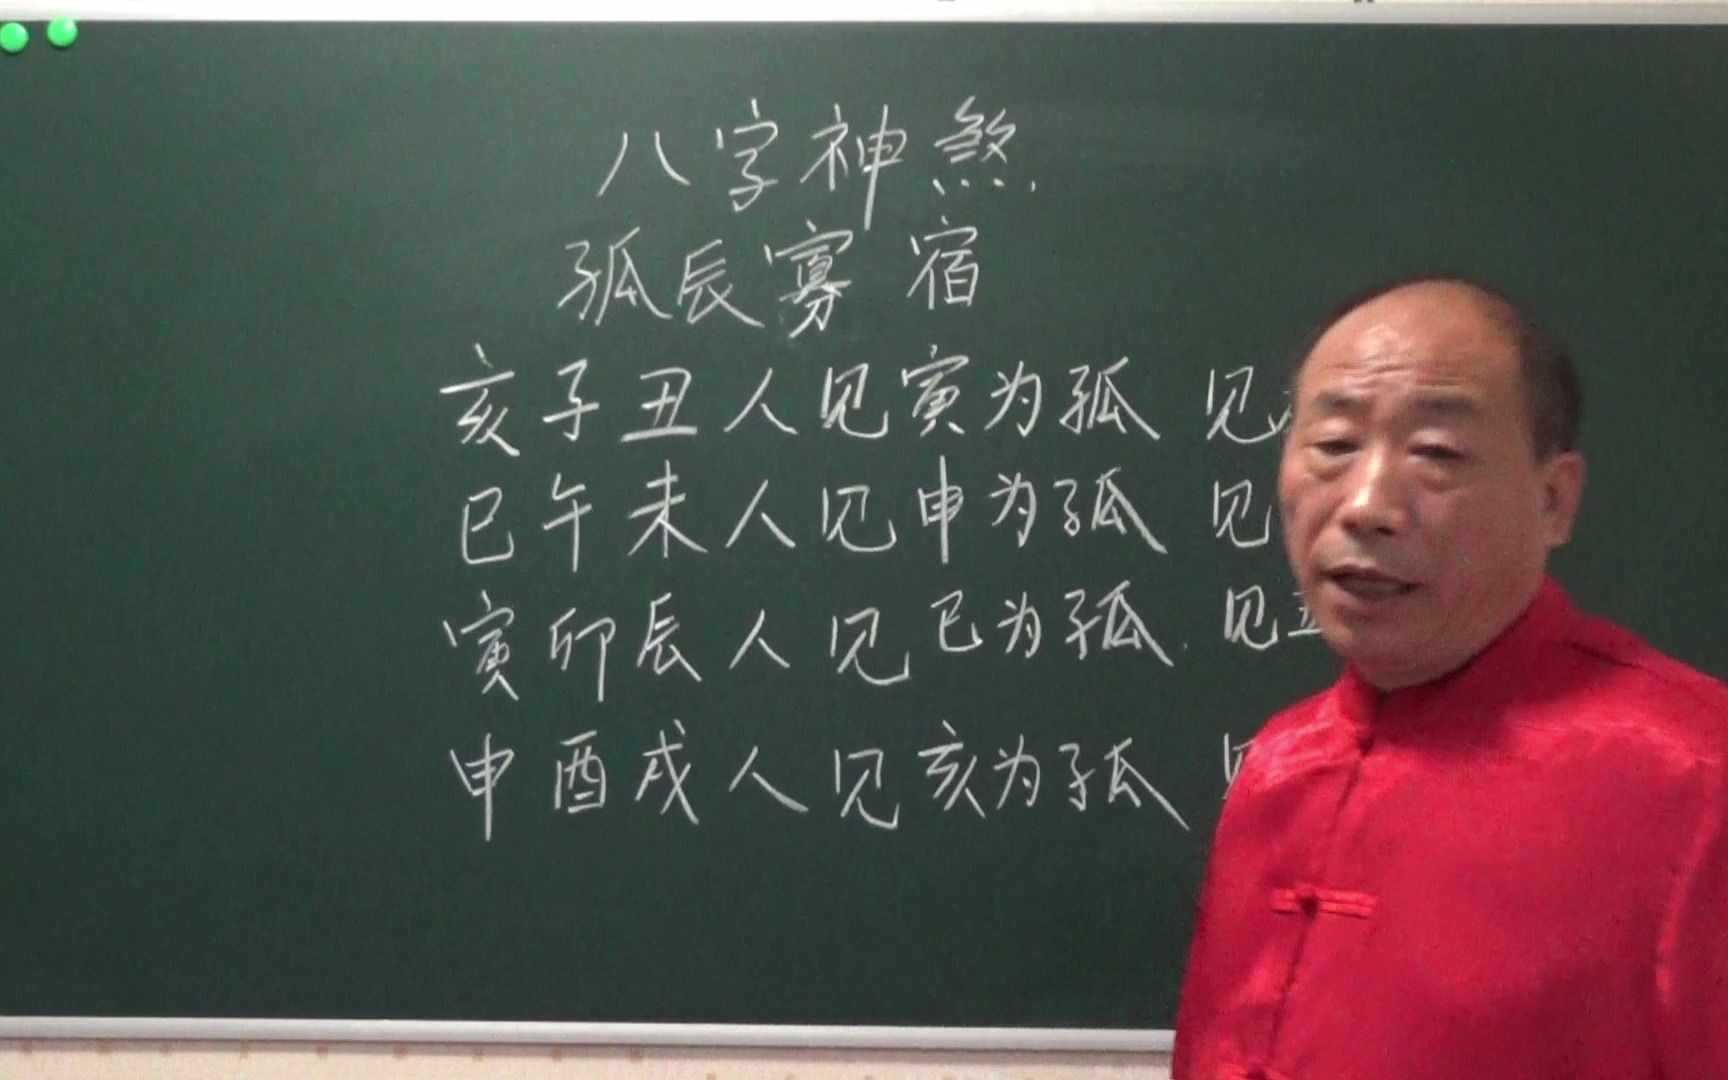 八字神煞
孤辰寡宿
亥子丑人见寅为孤 见
巳午未人见申为孤 见
寅卯辰人见巳为孤. 见
申酉戌人见亥为孤 见